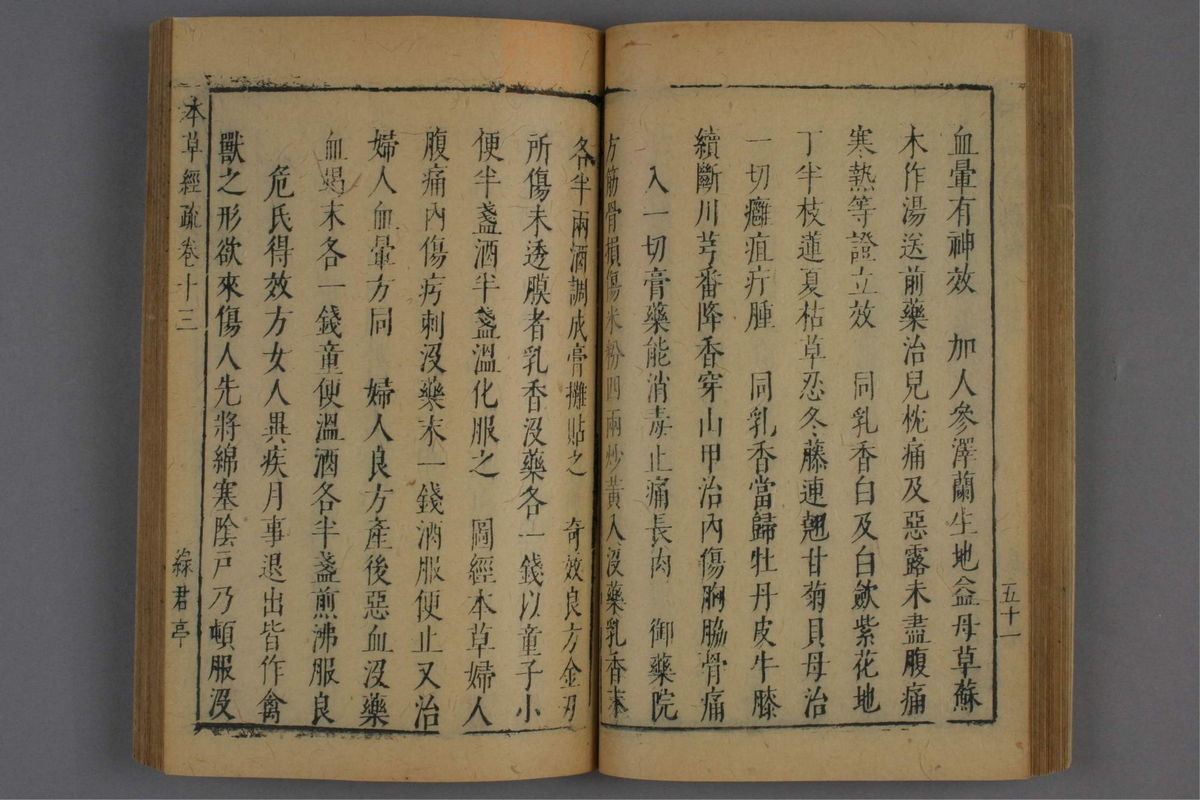 五十一
血暈有神效　加人參澤蘭生地益母草蘇
木作湯送前藥治兒枕痛及惡露未盡腹痛
寒熱等證立效　同乳香白及白蘞紫花地
丁半枝蓮夏枯草忍冬藤連翹甘菊貝母治
一切癰疽疔腫　同乳香當歸牡丹皮牛膝
續斷川芎番降香穿山甲治內傷胸脇骨痛
入一切膏藥能消毒止痛長肉　御藥院
方筋骨損傷米粉四兩炒黃入沒藥乳香末
各半兩酒調成膏攤貼之　奇效良方金刃
所傷未透膜者乳香沒藥各一錢以童子小
便半盞酒半盞溫化服之　圖經本草婦人
腹痛內傷疞刺沒藥末一錢酒服便止又治
婦人血暈方同　婦人良方產後惡血沒藥
血竭末各一錢童便溫酒各半盞煎沸服良
危氏得效方女人異疾月事退出皆作禽
獸之形欲來傷人先將綿塞陰戸乃頓服沒
本草經疏卷十三
綠君亭